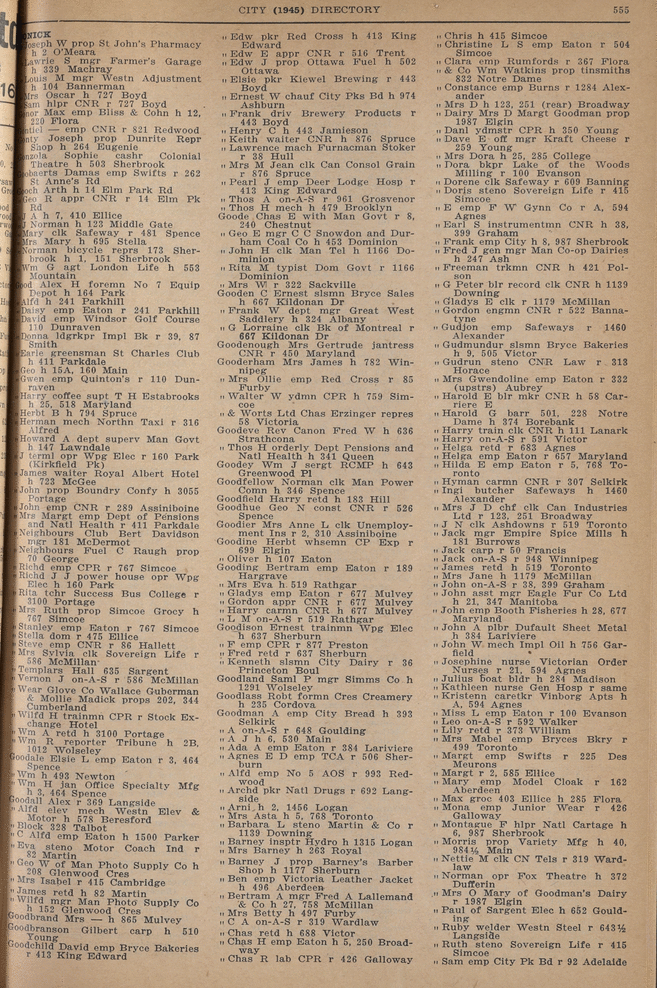 CITY (1945) DIRECTORY 555
NICK
Joseph W prop St John's Pharmacy
h 2 O'Meara
Lawrie S mgr Farmer's Garage
h 339 Machray
Louis M mgr Westn Adjustment
h 104 Bannerman
Mrs Oscar h 727 Boyd
Sam hlpr CNR r 727 Boyd
Max emp Bliss & Cohn h 12,
220 Flora
— emp CNR r 821 Redwood
Joseph prop Dunrite Repr
Shop h 264 Eugenie
Sophie cashr Colonial
Theatre h 503 Sherbrook
Damas emp Swifts r 262
St Anne's Rd
Arch h 14 Elm Park Rd
Geo R appr CNR r 14 Elm Pk
Rd
J A h 7, 410 Ellice
J Norman h 123 Middle Gate
Mary clk Safeway r 481 Spence
Mrs Mary h 695 Stella
Norman bicycle reprs 173 Sher-
brook h 1, 151 Sherbrook
Wm G agt London Life h 553
Mountain
Alex H foremn No 7 Equip
Depot h 164 Park
Alfd h 241 Parkhill
Daisy emp Eaton r 241 Parkhill
David emp Windsor Golf Course
110 Dunraven
Donna ldgrkpr Impl Bk r 39, 87
Smith
Earle greensman St Charles Club
h 411 Parkdale
Geo h 15A, 160 Main
Gwen emp Quinton's r 110 Dun-
raven
Harry coffee supt T H Estabrooks
h 25, 518 Maryland
Herbt B h 794 Spruce
Herman mech Northn Taxi r 316
Alfred
Howard A dept superv Man Govt
h 147 Lawndale
J terml opr Wpg Elec r 160 Park
(Kirkfield Pk)
James waiter Royal Albert Hotel
h 723 McGee
John prop Boundry Confy h 3055
Portage
John emp CNR r 289 Assiniboine
Mrs Margt emp Dept of Pensions
and Natl Health r 411 Parkdale
Neighbours Club Bert Davidson
mgr 181 McDermot
Neighbours Fuel C Raugh prop
70 George
Richd emp CPR r 767 Simcoe
Richd J J power house opr Wpg
Elec h 160 Park
Rita tchr Success Bus College r
3100 Portage
Mrs Ruth prop Simcoe Grocy h
767 Simcoe
Stanley emp Eaton r 767 Simcoe
Stella dom r 475 Ellice
Steve emp CNR r 86 Hallett
Mrs Sylvia clk Sovereign Life r
586 McMillan
Templars Hall 635 Sargent
Vernon J on-A-S r 586 McMillan
Wear Glove Co Wallace Guberman
& Mollie Madick props 202, 344
Cumberland
Wilfd H trainmn CPR r Stock Ex-
change Hotel
Wm A retd h 3100 Portage
Wm R reporter Tribune h 2B,
1012 Wolseley
Goodale Elsie L emp Eaton r 3, 464
Spence
" Wm h 493 Newton
" Wm H jan Office Specialty Mfg
h 3, 464 Spence
Goodall Alex r 369 Langside
" Alfd elev mech Westn Elev &
Motor h 578 Beresford
" Block 328 Talbot
" C Alfd emp Eaton h 1500 Parker
" Eva steno Motor Coach Ind r
82 Martin
" Geo W of Man Photo Supply Co h
208 Glenwood Cres
" Mrs Isabel r 415 Cambridge
" James retd h 82 Martin
" Wilfd mgr Man Photo Supply Co
h 152 Glenwood Cres
Goodbrand Mrs — h 865 Mulvey
Goodbranson Gilbert carp h 510
Young
Goodchild David emp Bryce Bakeries
r 413 King Edward
" Edw pkr Red Cross h 413 King
Edward
" Edw E appr CNR r 516 Trent
" Edw J prop Ottawa Fuel h 502
Ottawa
" Elsie pkr Kiewel Brewing r 443
Boyd
" Ernest W chauf City Pks Bd h 974
Ashburn
" Frank driv Brewery Products r
443 Boyd
" Henry C h 443 Jamieson
" Keith waiter CNR h 876 Spruce
" Lawrence mach Furnacman Stoker
r 38 Hull
" Mrs M Jean clk Can Consol Grain
r 876 Spruce
" Pearl J emp Deer Lodge Hosp r
413 King Edward
" Thos A on-A-S r 961 Grosvenor
" Thos H mech h 479 Brooklyn
Goode Chas E with Man Govt r 8,
240 Chestnut
" Geo E mgr C C Snowdon and Dur-
ham Coal Co h 453 Dominion
" John H clk Man Tel h 1166 Do-
minion
" Rita M typist Dom Govt r 1166
Dominion
" Mrs W r 322 Sackville
Gooden C Ernest slsmn Bryce Sales
h 667 Kildonan Dr
" Frank W dept mgr Great West
Saddlery h 324 Albany
" G Lorraine clk Bk of Montreal r
667 Kildonan Dr
Goodenough Mrs Gertrude jantress
CNR r 450 Maryland
Gooderham Mrs James h 782 Win-
nipeg
" Mrs Ollie emp Red Cross r 85
Furby
" Walter W ydmn CPR h 759 Sim-
coe
" & Worts Ltd Chas Erzinger repres
58 Victoria
Goodeve Rev Canon Fred W h 636
Strathcona
" Thos H orderly Dept Pensions and
Natl Health h 341 Queen
Goodey Wm J sergt RCMP h 643
Greenwood Pl
Goodfellow Norman clk Man Power
Comn h 346 Spence
Goodfield Harry retd h 183 Hill
Goodhue Geo N const CNR r 526
Spence
Goodier Mrs Anne L clk Unemploy-
ment Ins r 2, 310 Assiniboine
Goodine Herbt whsemn CP Exp r
699 Elgin
" Oliver h 107 Eaton
Gooding Bertram emp Eaton r 189
Hargrave
" Mrs Eva h 519 Rathgar
" Gladys emp Eaton r 677 Mulvey
" Gordon appr CNR r 677 Mulvey
" Harry carmn CNR h 677 Mulvey
" L M on-A-S r 519 Rathgar
Goodison Ernest trainmn Wpg Elec
h 637 Sherburn
" F emp CPR r 877 Preston
" Fred retd r 637 Sherburn
" Kenneth slsmn City Dairy r 36
Princeton Boul
Goodland Saml P mgr Simms Co h
1291 Wolseley
Goodlass Robt formn Cres Creamery
h 235 Cordova
Goodman A emp City Bread h 393
Selkirk
" A on-A-S r 648 Goulding
" A J h 6, 530 Main
" Ada A emp Eaton r 384 Lariviere
" Agnes E D emp TCA r 506 Sher-
burn
" Alfd emp No 5 AOS r 993 Red-
wood
" Archd pkr Natl Drugs r 692 Lang-
side
" Arni, h 2, 1456 Logan
" Mrs Asta h 5, 768 Toronto
" Barbara L steno Martin & Co r
1139 Downing
" Barney insptr Hydro h 1315 Logan
" Mrs Barney h 263 Royal
" Barney J prop Barney's Barber
Shop h 1177 Sherburn
" Ben emp Victoria Leather Jacket
h 496 Aberdeen
" Bertram A mgr Fred A Lallemand
& Co h 27, 758 McMillan
" Mrs Betty h 497 Furby
" C A on-A-S r 319 Wardlaw
" Chas retd h 688 Victor
" Chas H emp Eaton h 5, 250 Broad-
way
" Chas R lab CPR r 426 Galloway
" Chris h 415 Simcoe
" Christine L S emp Eaton r 504
Simcoe
" Clara emp Rumfords r 367 Flora
" & Co Wm Watkins prop tinsmiths
832 Notre Dame
" Constance emp Burns r 1284 Alex-
ander
" Mrs D h 123, 251 (rear) Broadway
" Dairy Mrs D Margt Goodman prop
1987 Elgin
" Danl ydmstr CPR h 350 Young
" Dave E off mgr Kraft Cheese r
259 Young
" Mrs Dora h 25, 285 College
" Dora bkpr Lake of the Woods
Milling r 100 Evanson
" Dorene clk Safeway r 609 Banning
" Doris steno Sovereign Life r 415
Simcoe
" E emp F W Gynn Co r A, 594
Agnes
" Earl S instrumentmn CNR h 38,
399 Graham
" Frank emp City h 8, 987 Sherbrook
" Fred J gen mgr Man Co-op Dairies
h 247 Ash
" Freeman trkmn CNR r 421 Pol-
son
" G Peter blr record clk CNR h 1139
Downing
" Gladys E clk r 1179 McMillan
" Gordon engmn CNR r 522 Banna-
tyne
" Gudjon emp Safeways r 1460
Alexander
" Gudmundur slsmn Bryce Bakeries
h 9, 505 Victor
" Gudrun steno CNR Law r 313
Horace
" Mrs Gwendoline emp Eaton r 332
(upstrs) Aubrey
" Harold E blr mkr CNR h 58 Car-
riere E
" Harold G barr 501, 228 Notre
Dame h 374 Borebank
" Harry train clk CNR h 111 Lanark
" Harry on-A-S r 591 Victor
" Helga retd r 683 Agnes
" Helga emp Eaton r 657 Maryland
" Hilda E emp Eaton r 5, 768 To-
ronto
" Hyman carmn CNR r 307 Selkirk
" Ingi butcher Safeways h 1460
Alexander
" Mrs J D chf clk Can Industries
Ltd r 123, 251 Broadway
" J N clk Ashdowns r 519 Toronto
" Jack mgr Empire Spice Mills h
181 Burrows
" Jack carp r 50 Francis
" Jack on-A-S r 948 Winnipeg
" James retd h 519 Toronto
" Mrs Jane h 1179 McMillan
" John on-A-S r 38, 399 Graham
" John asst mgr Eagle Fur Co Ltd
h 21, 347 Manitoba
" John emp Booth Fisheries h 28, 677
Maryland
" John A plbr Dufault Sheet Metal
h 384 Lariviere
" John W mech Impl Oil h 756 Gar-
field
" Josephine nurse Victorian Order
Nurses r 21, 594 Agnes
" Julius boat bldr h 284 Madison
" Kathleen nurse Gen Hosp r same
" Kristenn caretkr Vinborg Apts h
A, 594 Agnes
" Miss L emp Eaton r 100 Evanson
" Leo on-A-S r 592 Walker
" Lily retd r 373 William
" Mrs Mabel emp Bryces Bkry r
499 Toronto
" Margt emp Swifts r 225 Des
Meurons
" Margt r 2, 585 Ellice
" Mary emp Model Cloak r 162
Aberdeen
" Max groc 403 Ellice h 285 Flora
" Mona emp Junior Wear r 426
Galloway
" Montague F hlpr Natl Cartage h
6, 987 Sherbrook
" Morris prop Variety Mfg h 40,
984½ Main
" Nettie M clk CN Tels r 319 Ward-
law
" Norman opr Fox Theatre h 372
Dufferin
" Mrs O Mary of Goodman's Dairy
r 1987 Elgin
" Paul of Sargent Elec h 652 Gould-
ing
" Ruby welder Westn Steel r 643½
Langside
" Ruth steno Sovereign Life r 415
Simcoe
" Sam emp City Pk Bd r 92 Adelaide